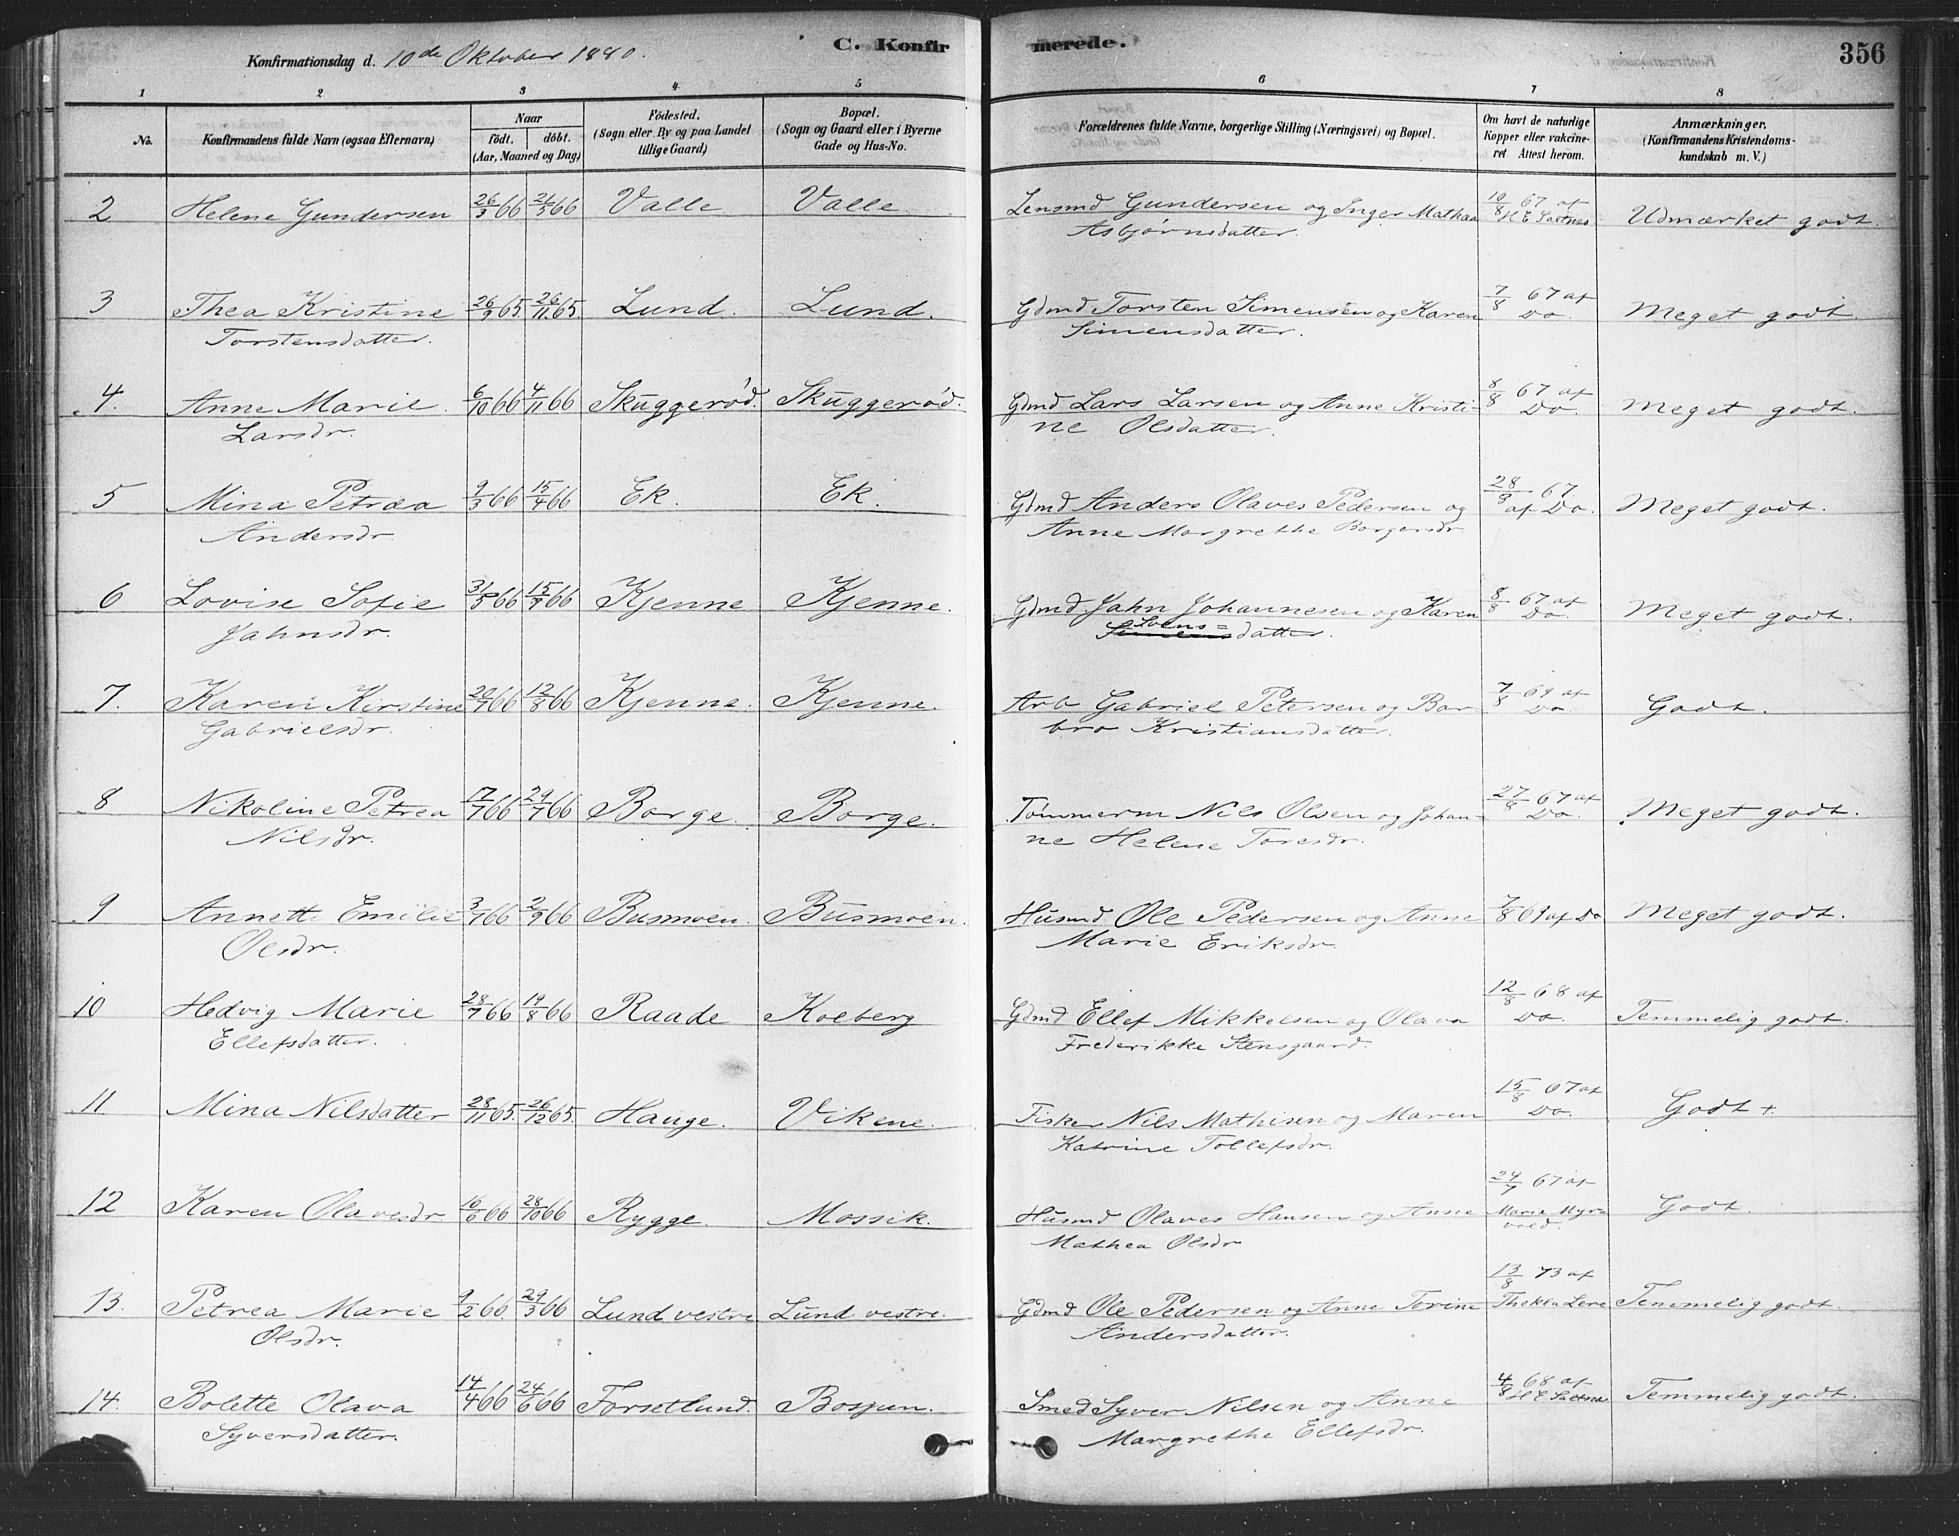 Konfirmationsdag d. 10de Oktober 1880.
C. Konfirmerede.
356
1 2 3 4 5 6 7 8
No.
Konfirmandens fulde Navn (ogsaa Efternavn)
Naar
födt. döbt.
(Aar, Maaned og Dag)
Födested.
(Sogn eller By og paa Landet
tillige Gaard)
Bopæl.
(Sogn og Gaard eller i Byerne
Gade og Hus-No.
Forældrenes fulde Navne, borgerlige Stilling (Næringsvei) og Bopæl.
Om havt de naturlige
Kopper eller vakcine-
ret Attest herom.
Anmærkninger.
(Konfirmandens Kristendoms-
kundskab m. V.)
2 Helene Gundersen 26/3 66 21/5 66 Valle. Valle. Lensmd Gundersen og Inger Mathea 10/8 67 af H E Saltnes Udmærket godt.
Asbjørnsdatter.
3 Thea Kristine 26/9 65. 26/11 65. Lund. Lund. Gdmd Torsten Simensen og Karen 7/8 67 af Do. Meget godt.
Torstensdatter. Simensdatter.
4. Anne Marie 6/10 66 4/11 66 Skuggerød. Skuggerød. Gdmd Lars Larsen og Anne Kristi- 8/8 67 af Do. Meget godt.
Larsdr. ne Olsdatter.
5 Mina Petrea 9/3 66 15/4 66 Ek. Ek. Gdmd Anders Olaves Pedersen og 28/8 67. af Do. Meget godt.
Andersdr. Anne Margrethe Borgersdr.
6 Lovise Sofie 31/5 66 15/7 66 Kjenne Kjenne. Gdmd. Jahn Johannesen og Karen 8/8 67 af Do. Meget godt.
Jahnsdr. Svens=
Simensdatter.
7. Karen Kirstine 20/7 66 12/8 66 Kjenne. Kjenne. Arb Gabriel Petersen og Bar- 7/8 69 af Do. Godt.
Gabrielsdr. bro Kristiansdatter.
8 Nikoline Petrea 17/7 66 29/7 66 Borge. Borge. Tømmerm Nils Olsen og Johan- 27/8 67 af Do. Meget godt.
Nilsdr. ne Helene Toresdr.
9 Annette Emilie 3/7 66 2/9 66 Busmoen. Busmoen. Husmd Ole Pedersen og Anne 7/8 69 af Do Meget godt.
Olsdr. Marie Eriksdr.
10 Hedvig Marie 28/7 66 19/8 66 Raade Kolberg Gdmd Ellef Mikkelsen og Olava 12/8 68 af Do. Temmelig godt.
Ellefsdatter. Frederikke Stensgaard.
11. Mina Nilsdatter 28/11 65. 26/12 65. Hauge. Vikene. Fisker Nils Mathisen og Maren 15/8 67 af Do. Godt +.
Katrine Tollefsdr.
12 Karen Olavesdr 16/6 66 28/10 66 Rygge. Mossik. Husmd Olaves Hansen og Anne 24/7 67 af Marie Myrvold. Godt.
Mathea Olsdr
13. Petrea Marie 9/2 66. 29/3 66 Lund vestre Lund vestre. Gdmd Ole Pedersen og Anne Torine 13/8 73 af Thekla Lere Temmelig godt.
Olsdr. Andersdatter.
14. Bolette Olava 14/4 66 24/6 66 Forsetlund. Bosjun. Smed Syver Nilsen og Anne 4/8 68 af H E Saltnes Temmelig godt.
Syversdatter. Margrethe Ellefsdr.